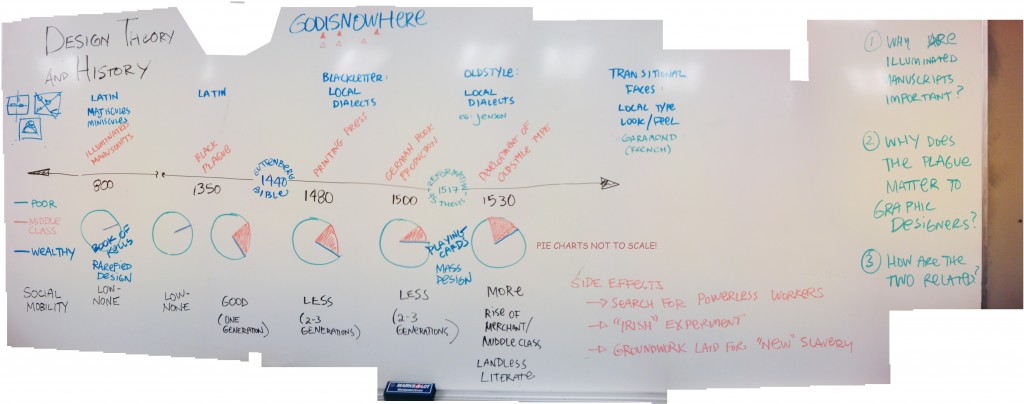 DESIGN THEORY
AND HISTORY
GODISNOWHERE
LATIN
MAJISCULES
MINISCULES
LATIN
BLACKLETTER:
LOCAL
DIALECTS
OLDSTYLE:
LOCAL
DIALECTS
eg: JENSON
TRANSITIONAL
FACES:
LOCAL TYPE
LOOK/FEEL
GARAMOND
(FRENCH)
ILLUMINATED
MANUSCRIPTS
BLACK
PLAGUE
GUTTENBERG
1440
BIBLE
PRINTING PRESS
GERMAN BOOK
PRODUCTION
REFORMATION
1517
THESIS
DEVELOPMENT OF
OLDSTYLE TYPE
800
1350
1480
1500
1530
POOR
MIDDLE
CLASS
WEALTHY
BOOK OF
KELLS
RAREFIED
DESIGN
PLAYING
CARDS
MASS
DESIGN
PIE CHARTS NOT TO SCALE!
SOCIAL
MOBILITY
LOW-
NONE
LOW-
NONE
GOOD
(ONE
GENERATION)
LESS
(2-3
GENERATIONS)
LESS
(2-3
GENERATIONS)
MORE
RISE OF
MERCHANT/
MIDDLE CLASS
LANDLESS
LITERATE
SIDE EFFECTS
→ SEARCH FOR POWERLESS WORKERS
→ "IRISH" EXPERIMENT
→ GROUNDWORK LAID FOR "NEW" SLAVERY
1 WHY ARE
ILLUMINATED
MANUSCRIPTS
IMPORTANT?
2 WHY DOES
THE PLAGUE
MATTER TO
GRAPHIC
DESIGNERS?
3 HOW ARE THE
TWO RELATED?
MARKS-A-LOT